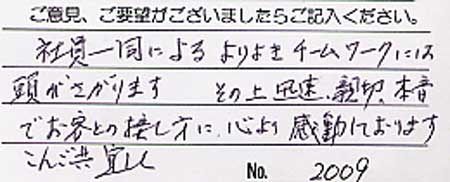 ご意見、ご要望がございましたらご記入ください。
社員一同による よりよき チームワークには
頭がさがります その上 迅速、親切、本音
でお客との接し方に、心より 感動しております
こんご共 宜しく
No. 2009